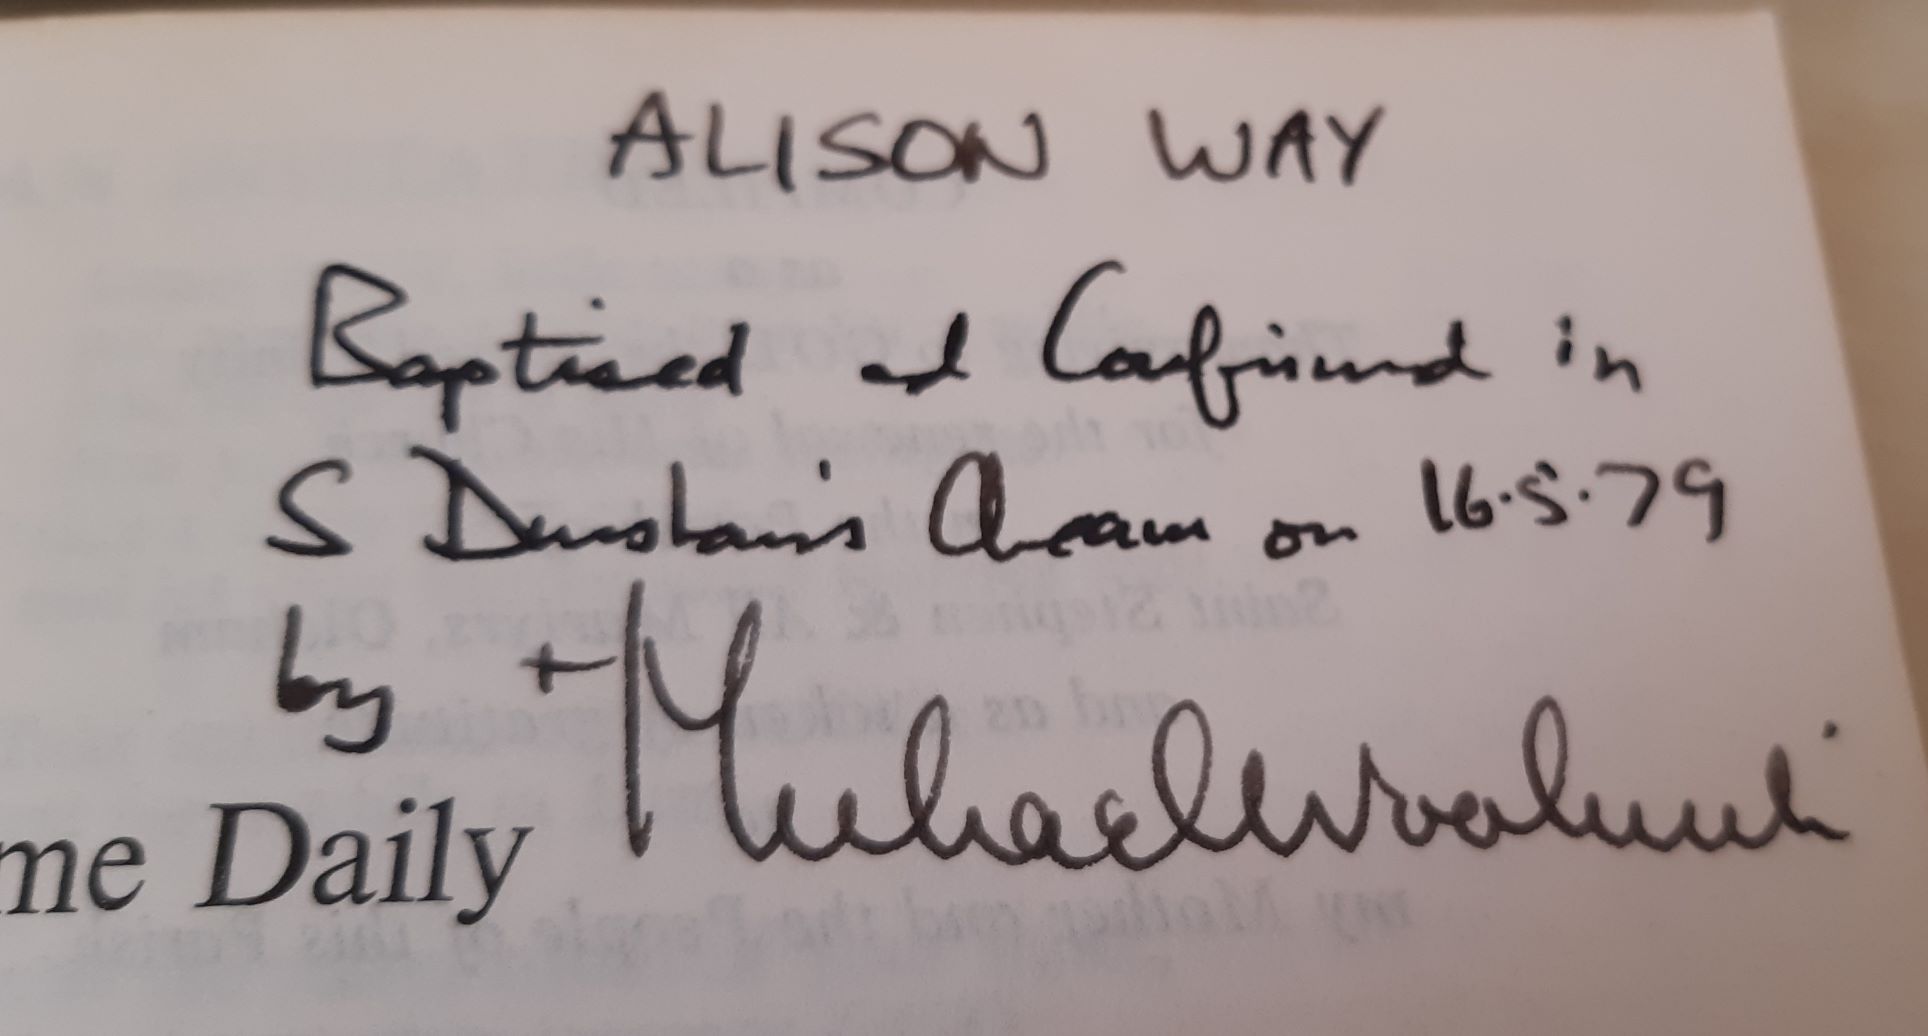 ALISON WAY
Baptised and Confirmed in
S Dunstan's Cheam on 16.5.79
by + Michael Woolwich
me Daily